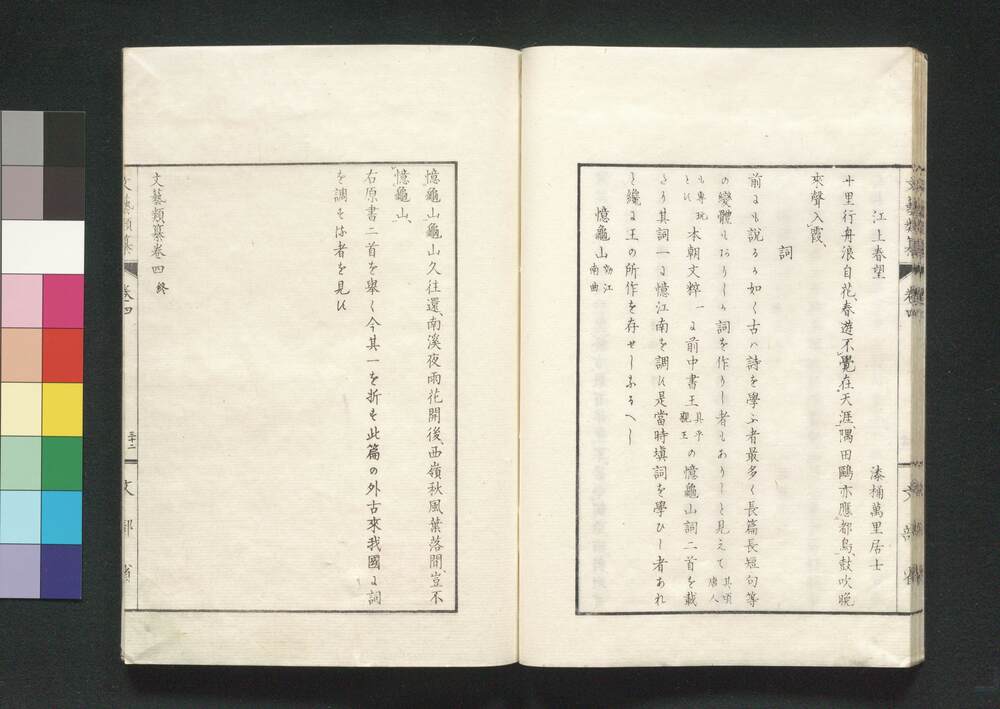 江上春望 漆桶萬里居士
十里行舟浪自花、春遊不覺在天涯、隅田鷗亦應都鳥、鼓吹晩
來聲入霞、
詞
前にも説るか如く古ハ詩を學ふ者最多く長篇長短句等
の變體もありしか詞を作りし者もありしと見えて其頃唐人
も專玩とひ本朝文粹一に前中書王具平親王の憶龜山詞二首を載
たり其詞一に憶江南を調ひ是當時塡詞を學ひし者あれ
と纔に王の所作を存せしなるへし
憶龜山 効江南曲
憶龜山龜山久往還、南溪夜雨花開後、西嶺秋風葉落間、豈不
憶龜山、
右原書二首を擧く今其一を折も此篇の外古來我國に詞
を調もは者を見ひ
文藝類纂卷四終
文藝類纂
卷四
三十二
文部省